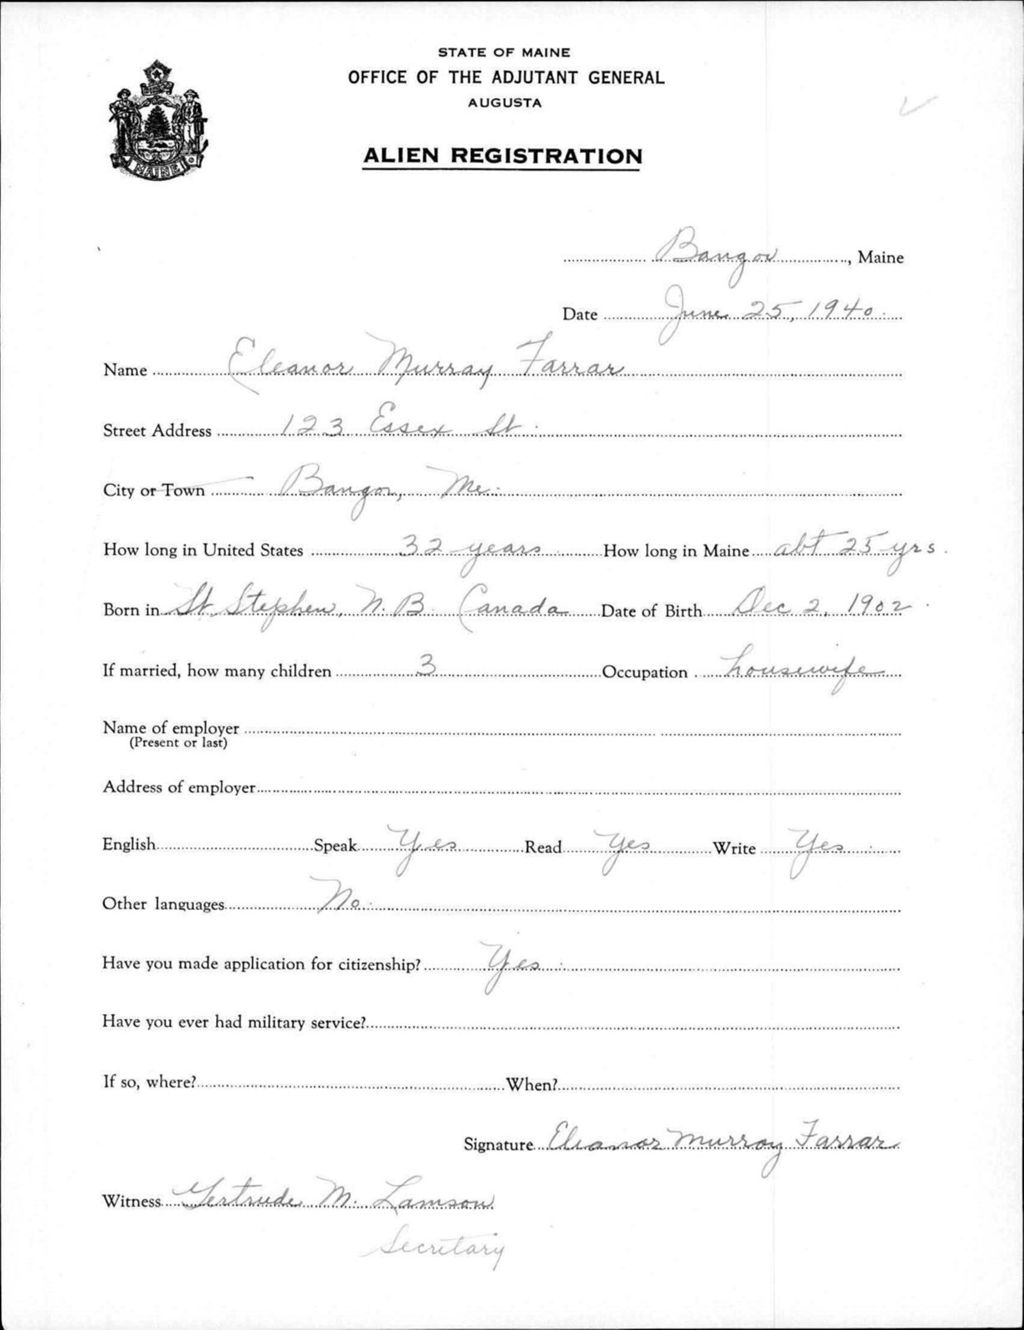 STATE OF MAINE
OFFICE OF THE ADJUTANT GENERAL
AUGUSTA
ALIEN REGISTRATION
MAINE
Bangor, Maine
Date June 25, 1940.
Name Eleanor Murray Farrar
Street Address 123 Essex St.
City or Town Bangor, Me.
How long in United States 32 years How long in Maine abt 25 yrs.
Born in St. Stephen, N. B. Canada Date of Birth Dec 2, 1902.
If married, how many children 3 Occupation housewife
Name of employer
(Present or last)
Address of employer
English Speak Yes Read Yes Write Yes
Other languages No.
Have you made application for citizenship? Yes.
Have you ever had military service?
If so, where? When?
Signature Eleanor Murray Farrar
Witness Gertrude M. Lamson
Secretary